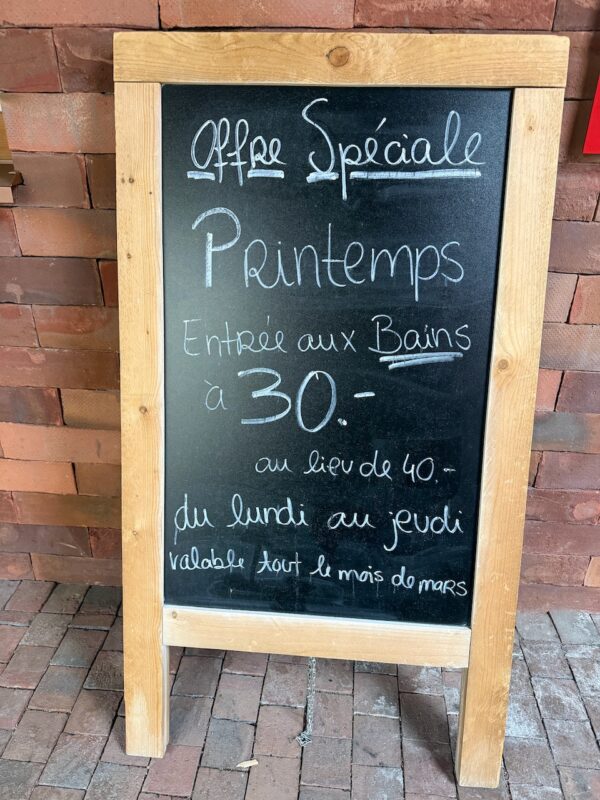 Offre Spéciale
Printemps
Entrée aux Bains
à 30.-
au lieu de 40.-
du lundi au jeudi
valable tout le mois de mars